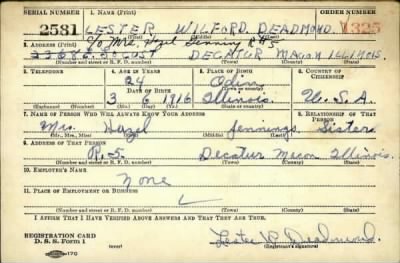 SERIAL NUMBER
1. NAME (Print)
ORDER NUMBER
2581
LESTER WILFORD DEADMOND
1325
(First) (Middle) (Last)
% Mrs. Hazel Jennings R#5
2. ADDRESS (Print)
DECATUR MACON ILLINOIS
(Number and street or R. F. D. number) (Town) (County) (State)
3. TELEPHONE
4. AGE IN YEARS
5. PLACE OF BIRTH
6. COUNTRY OF CITIZENSHIP
24
Odin
DATE OF BIRTH
(Town or county)
3 6 1916
Illinois
U. S. A.
(Exchange) (Number)
(Mo.) (Day) (Yr.)
(State or country)
7. NAME OF PERSON WHO WILL ALWAYS KNOW YOUR ADDRESS
8. RELATIONSHIP OF THAT PERSON
Mrs. Hazel Jennings Sister
(Mr., Mrs., Miss) (First) (Middle) (Last)
9. ADDRESS OF THAT PERSON
R. 5 Decatur Macon Illinois
(Number and street or R. F. D. number) (Town) (County) (State)
10. EMPLOYER'S NAME
None
11. PLACE OF EMPLOYMENT OR BUSINESS
(Number and street or R. F. D. number) (Town) (County) (State)
I AFFIRM THAT I HAVE VERIFIED ABOVE ANSWERS AND THAT THEY ARE TRUE.
REGISTRATION CARD
D. S. S. Form 1
(over)
Lester W. Deadmond
(Registrant's signature)